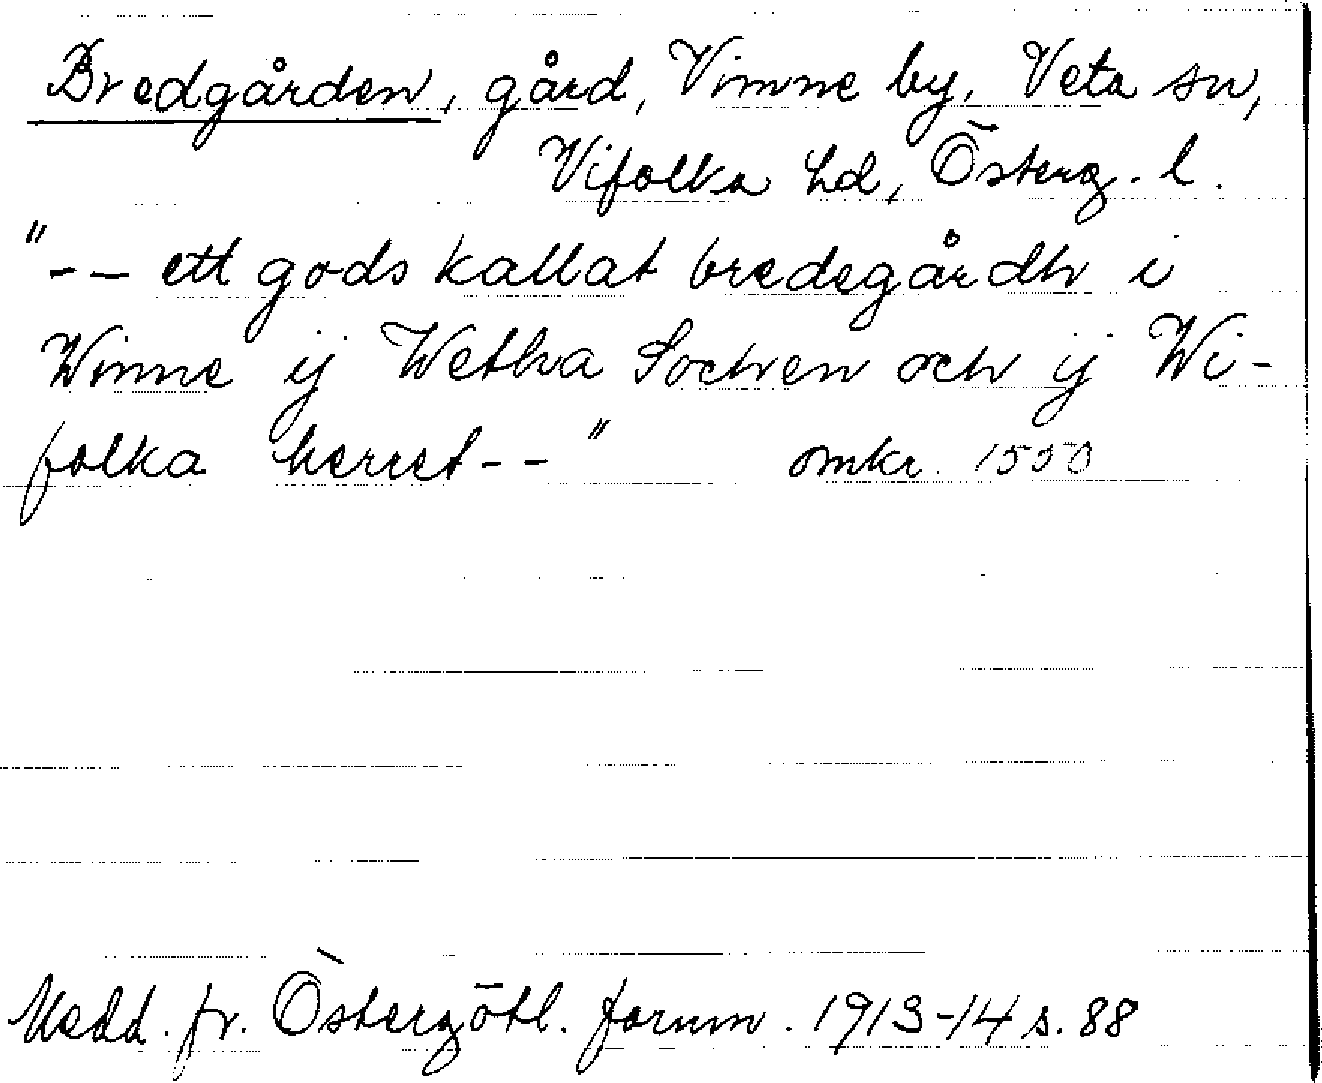 Bredgården, gård, Vimne by, Veta sn,
Vifolka hd, Österg. l.
"-- ett gods kallat bredegårdh i
Winne ij Wetha Sochen och ij Wi-
folka herret--" omkr. 1550
Medd. fr. Östergötl. fornm. 1913-14 s. 88